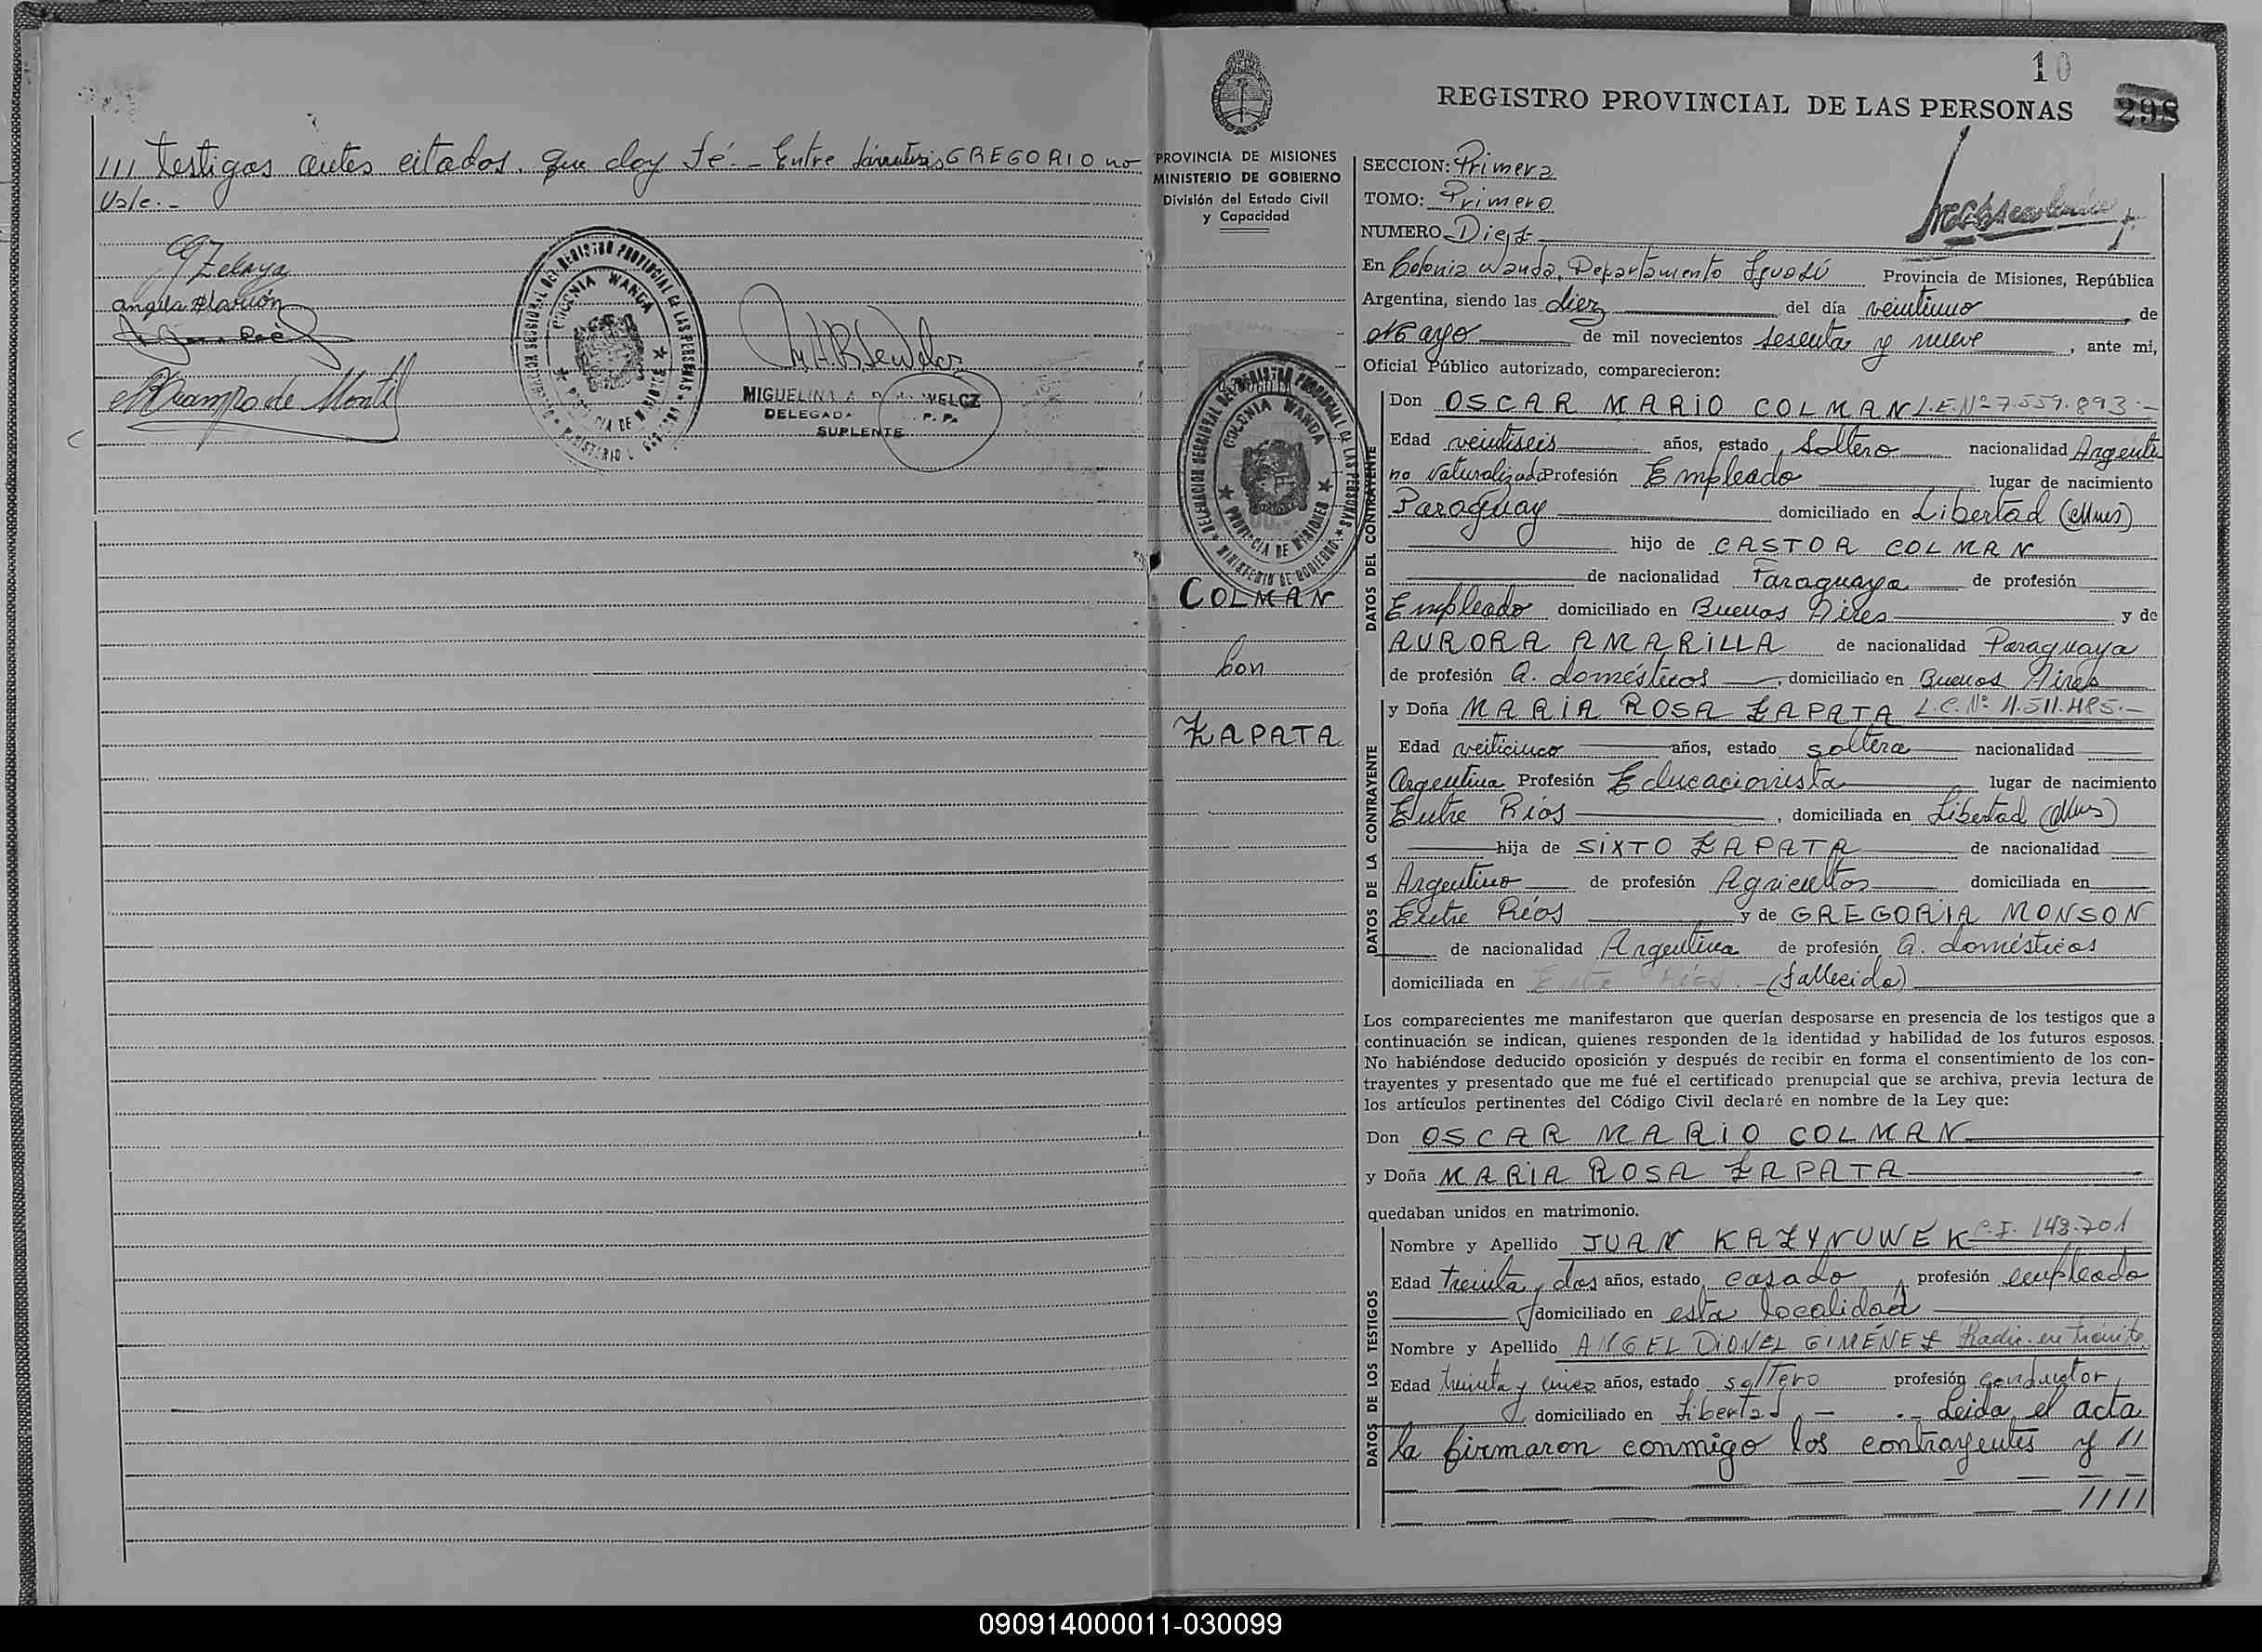 /// testigos antes citados. Que doy fé.- Entre paréntesis GREGORIO no
Vale.-
Zelaya
MIGUELINA
DELEGADA
SUPLENTE
P. P.
DELEGACION SECCIONAL DEL REGISTRO PROVINCIAL DE LAS PERSONAS
COLONIA WANDA
PROVINCIA DE MISIONES
MINISTERIO DE GOBIERNO
PROVINCIA DE MISIONES
MINISTERIO DE GOBIERNO
División del Estado Civil
y Capacidad
DELEGACION SECCIONAL DEL REGISTRO PROVINCIAL DE LAS PERSONAS
COLONIA WANDA
PROVINCIA DE MISIONES
MINISTERIO DE GOBIERNO
COLMAN
Con
ZAPATA
10
REGISTRO PROVINCIAL DE LAS PERSONAS
298
SECCION: Primera
TOMO: Primero
NUMERO Diez
En Colonia Wanda, Departamento Iguazú Provincia de Misiones, República
Argentina, siendo las diez del día veintiuno de
Mayo de mil novecientos sesenta y nueve, ante mi,
Oficial Público autorizado, comparecieron:
DATOS DEL CONTRAYENTE
Don OSCAR MARIO COLMAN L.E. Nº 7.559.893.-
Edad veintiseis años, estado Soltero nacionalidad Argenti-
no Naturalizado Profesión Empleado lugar de nacimiento
Paraguay domiciliado en Libertad (Mnes)
hijo de CASTOR COLMAN
de nacionalidad Paraguaya de profesión
Empleado domiciliado en Buenos Aires y de
AURORA AMARILLA de nacionalidad Paraguaya
de profesión Q. domésticos, domiciliado en Buenos Aires
DATOS DE LA CONTRAYENTE
y Doña MARIA ROSA ZAPATA L.C. Nº 11.511.485.-
Edad veiticinco años, estado soltera nacionalidad
Argentina Profesión Educacionista lugar de nacimiento
Entre Ríos, domiciliada en Libertad (Mns)
hija de SIXTO ZAPATA de nacionalidad
Argentino de profesión Agricultor domiciliada en
Entre Ríos y de GREGORIA MONSON
de nacionalidad Argentina de profesión Q. domésticos
domiciliada en Entre Ríos.- (fallecida)
Los comparecientes me manifestaron que querían desposarse en presencia de los testigos que a
continuación se indican, quienes responden de la identidad y habilidad de los futuros esposos.
No habiéndose deducido oposición y después de recibir en forma el consentimiento de los con-
trayentes y presentado que me fué el certificado prenupcial que se archiva, previa lectura de
los artículos pertinentes del Código Civil declaré en nombre de la Ley que:
Don OSCAR MARIO COLMAN
y Doña MARIA ROSA ZAPATA
quedaban unidos en matrimonio.
DATOS DE LOS TESTIGOS
Nombre y Apellido JUAN KAZYNUWEK C.I. 143.701
Edad treinta y dos años, estado casado, profesión empleado
domiciliado en esta localidad
Nombre y Apellido ANGEL DIONEL GIMÉNEZ Radic. en trámite
Edad treinta y cinco años, estado soltero profesión conductor
domiciliado en Libertad.- Leida el acta
la firmaron conmigo los contrayentes y //
////
090914000011-030099